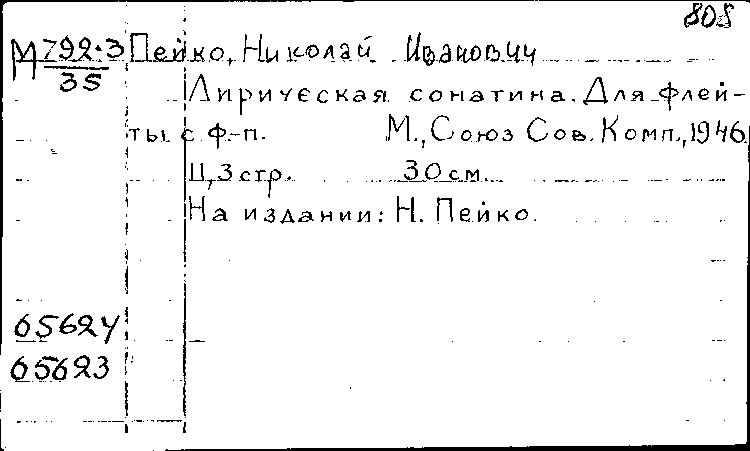 808
М 792:3 Пейко, Николай Иванович
35
Лирическая сонатина. Для флей-
ты с ф-п. М., Союз Сов. Комп., 1946
11, 3 стр. 30 см.
На издании: Н. Пейко.
65624
65623